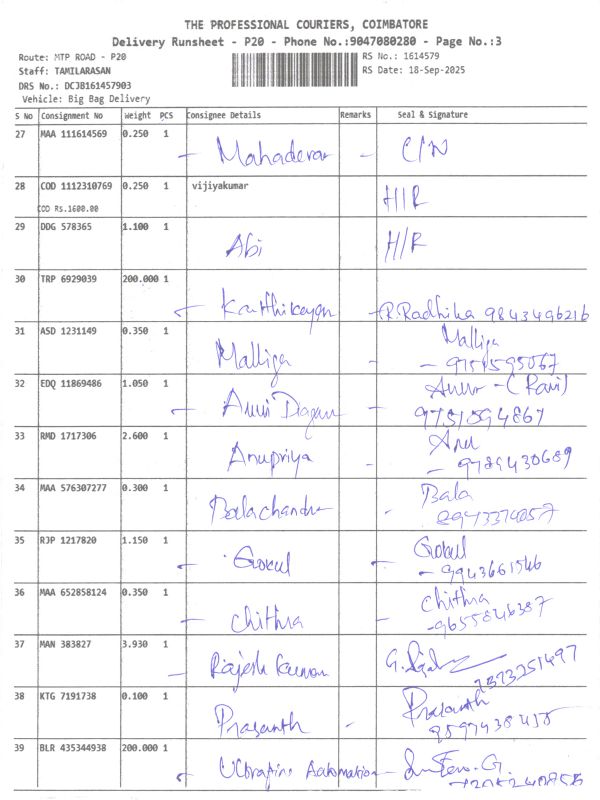 THE PROFESSIONAL COURIERS, COIMBATORE
Delivery Runsheet - P20 - Phone No.:9047080280 - Page No.:3
Route: MTP ROAD - P20 RS No.: 1614579
Staff: TAMILARASAN RS Date: 18-Sep-2025
DRS No.: DCJB161457903
Vehicle: Big Bag Delivery
S No Consignment No Weight PCS Consignee Details Remarks Seal & Signature
27 MAA 111614569 0.250 1
Mahadevan - C/N
28 COD 1112310769 0.250 1 vijiyakumar
COD Rs.1600.00 H/R
29 DDG 578365 1.100 1
Abi H/R
30 TRP 6929039 200.000 1
Karthikeyan R.Radhika 9843496216
31 ASD 1231149 0.350 1 Malliga
Malliga - 9751595067
32 EDQ 11869486 1.050 1 - (Ravi)
9751594867
33 RMD 1717306 2.600 1 Anu
Anupriya - - 9789430689
34 MAA 576307277 0.300 1 Bala
Balachandra -
35 RJP 1217820 1.150 1 Gokul
Gokul - 9943661546
36 MAA 652858124 0.350 1 Chithra
Chithra - 9655846387
37 MAN 383827 3.930 1
Rajesh kumar
38 KTG 7191738 0.100 1 Prasanth
Prasanth -
39 BLR 435344938 200.000 1
Automation